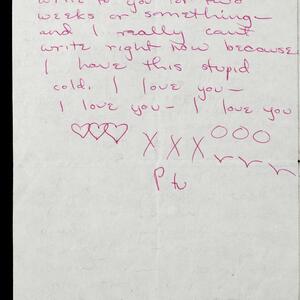 write to you for two
weeks or something—
and I really can't
write right now because
I have this stupid
cold. I love you—
I love you— I love you
X X X OOO